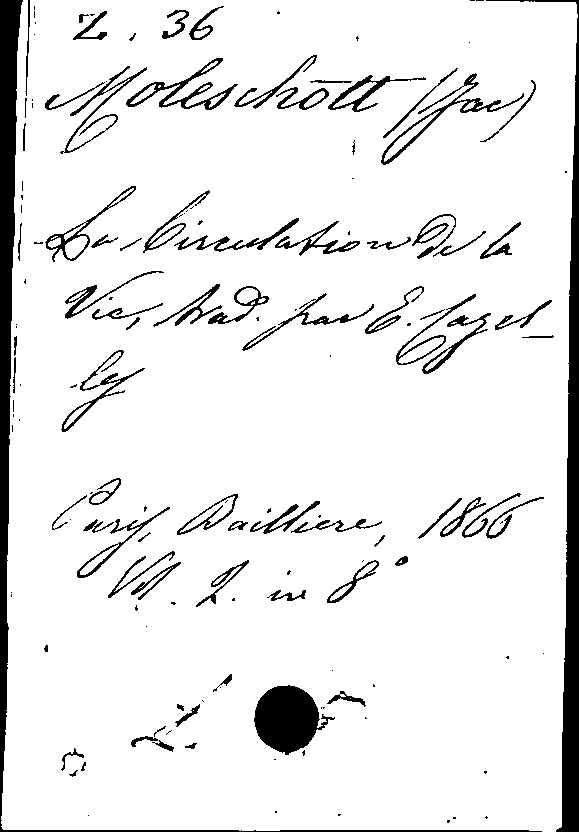 Z. 36
Moleschott (Jac)
La Circulation de la
Vie, trad. par E. Cazel-
les
Paris, Bailliere, 1866
Vol. 2. in 8°